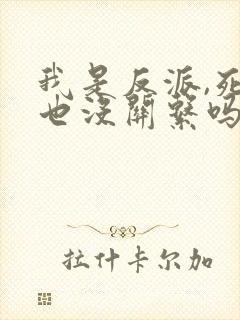 我是反派,死
也没關繫吗
拉什卡尔加